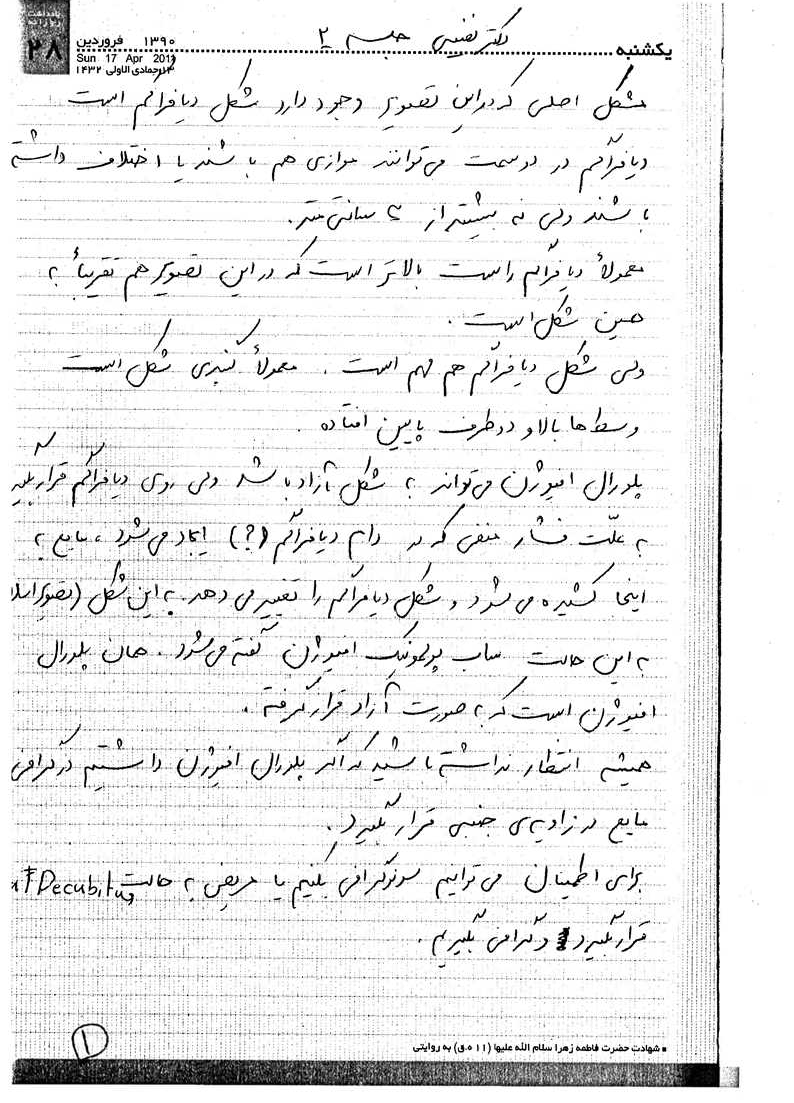 یادداشت روزانه
۲۸
۱۳۹۰ فروردین
Sun 17 Apr 2011
۱۳جمادی الاولی ۱۴۳۲
یکشنبه
دکتر نفیسی جلسه ۲
مشکل اصلی که دراین تصویر وجود دارد شکل دیافراگم است
دیافراگم در دو سمت می‌توانند موازی هم باشند یا اختلاف داشته
باشند ولی نه بیشتر از ۳ سانتی‌متر.
معمولاً دیافراگم راست بالاتر است که در این تصویر هم تقریباً به
همین شکل است.
ولی شکل دیافراگم هم مهم است. معمولاً گنبدی شکل است
وسط‌ها بالا و دو طرف پایین افتاده.
پلورال افیوژن می‌تواند به شکل آزاد باشد ولی روی دیافراگم قرار بگیرد
به علّت فشار منفی که در دام دیافراگم (؟) ایجاد می‌شود، مایع به
اینجا کشیده می‌شود و شکل دیافراگم را تغییر می‌دهد. به این شکل (تصویر اسلاید
به این حالت ساب پولمونیک افیوژن گفته می‌شود. همان پلورال
افیوژن است که به صورت آزاد قرار گرفته.
همیشه انتظار نداشته باشید که اگر پلورال افیوژن داشتیم در گرافی
مایع در زاویه‌ی جنبی قرار بگیرد.
برای اطمینان می‌توانیم سونوگرافی بکنیم یا مریض به حالت Decubitus
قرار بگیرد و گرافی بگیریم.
شهادت حضرت فاطمه زهرا سلام الله علیها (۱۱ ه.ق) به روایتی
۱